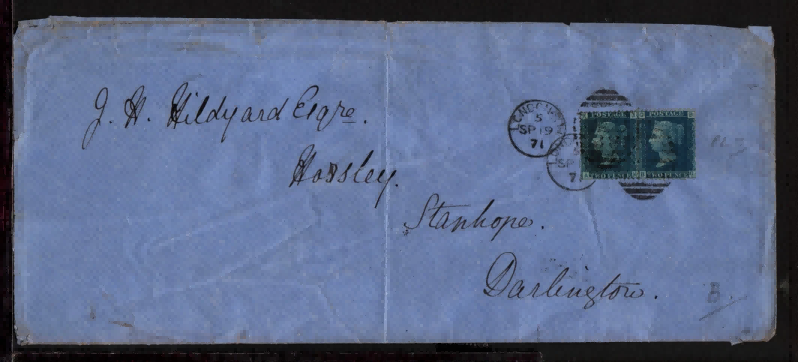 J. H. Hildyard Esqre.
Horsley.
Stanhope.
Darlington.
LONDON
5
SP 19
71
SP
71
POSTAGE
TWO PENCE
POSTAGE
TWO PENCE
B